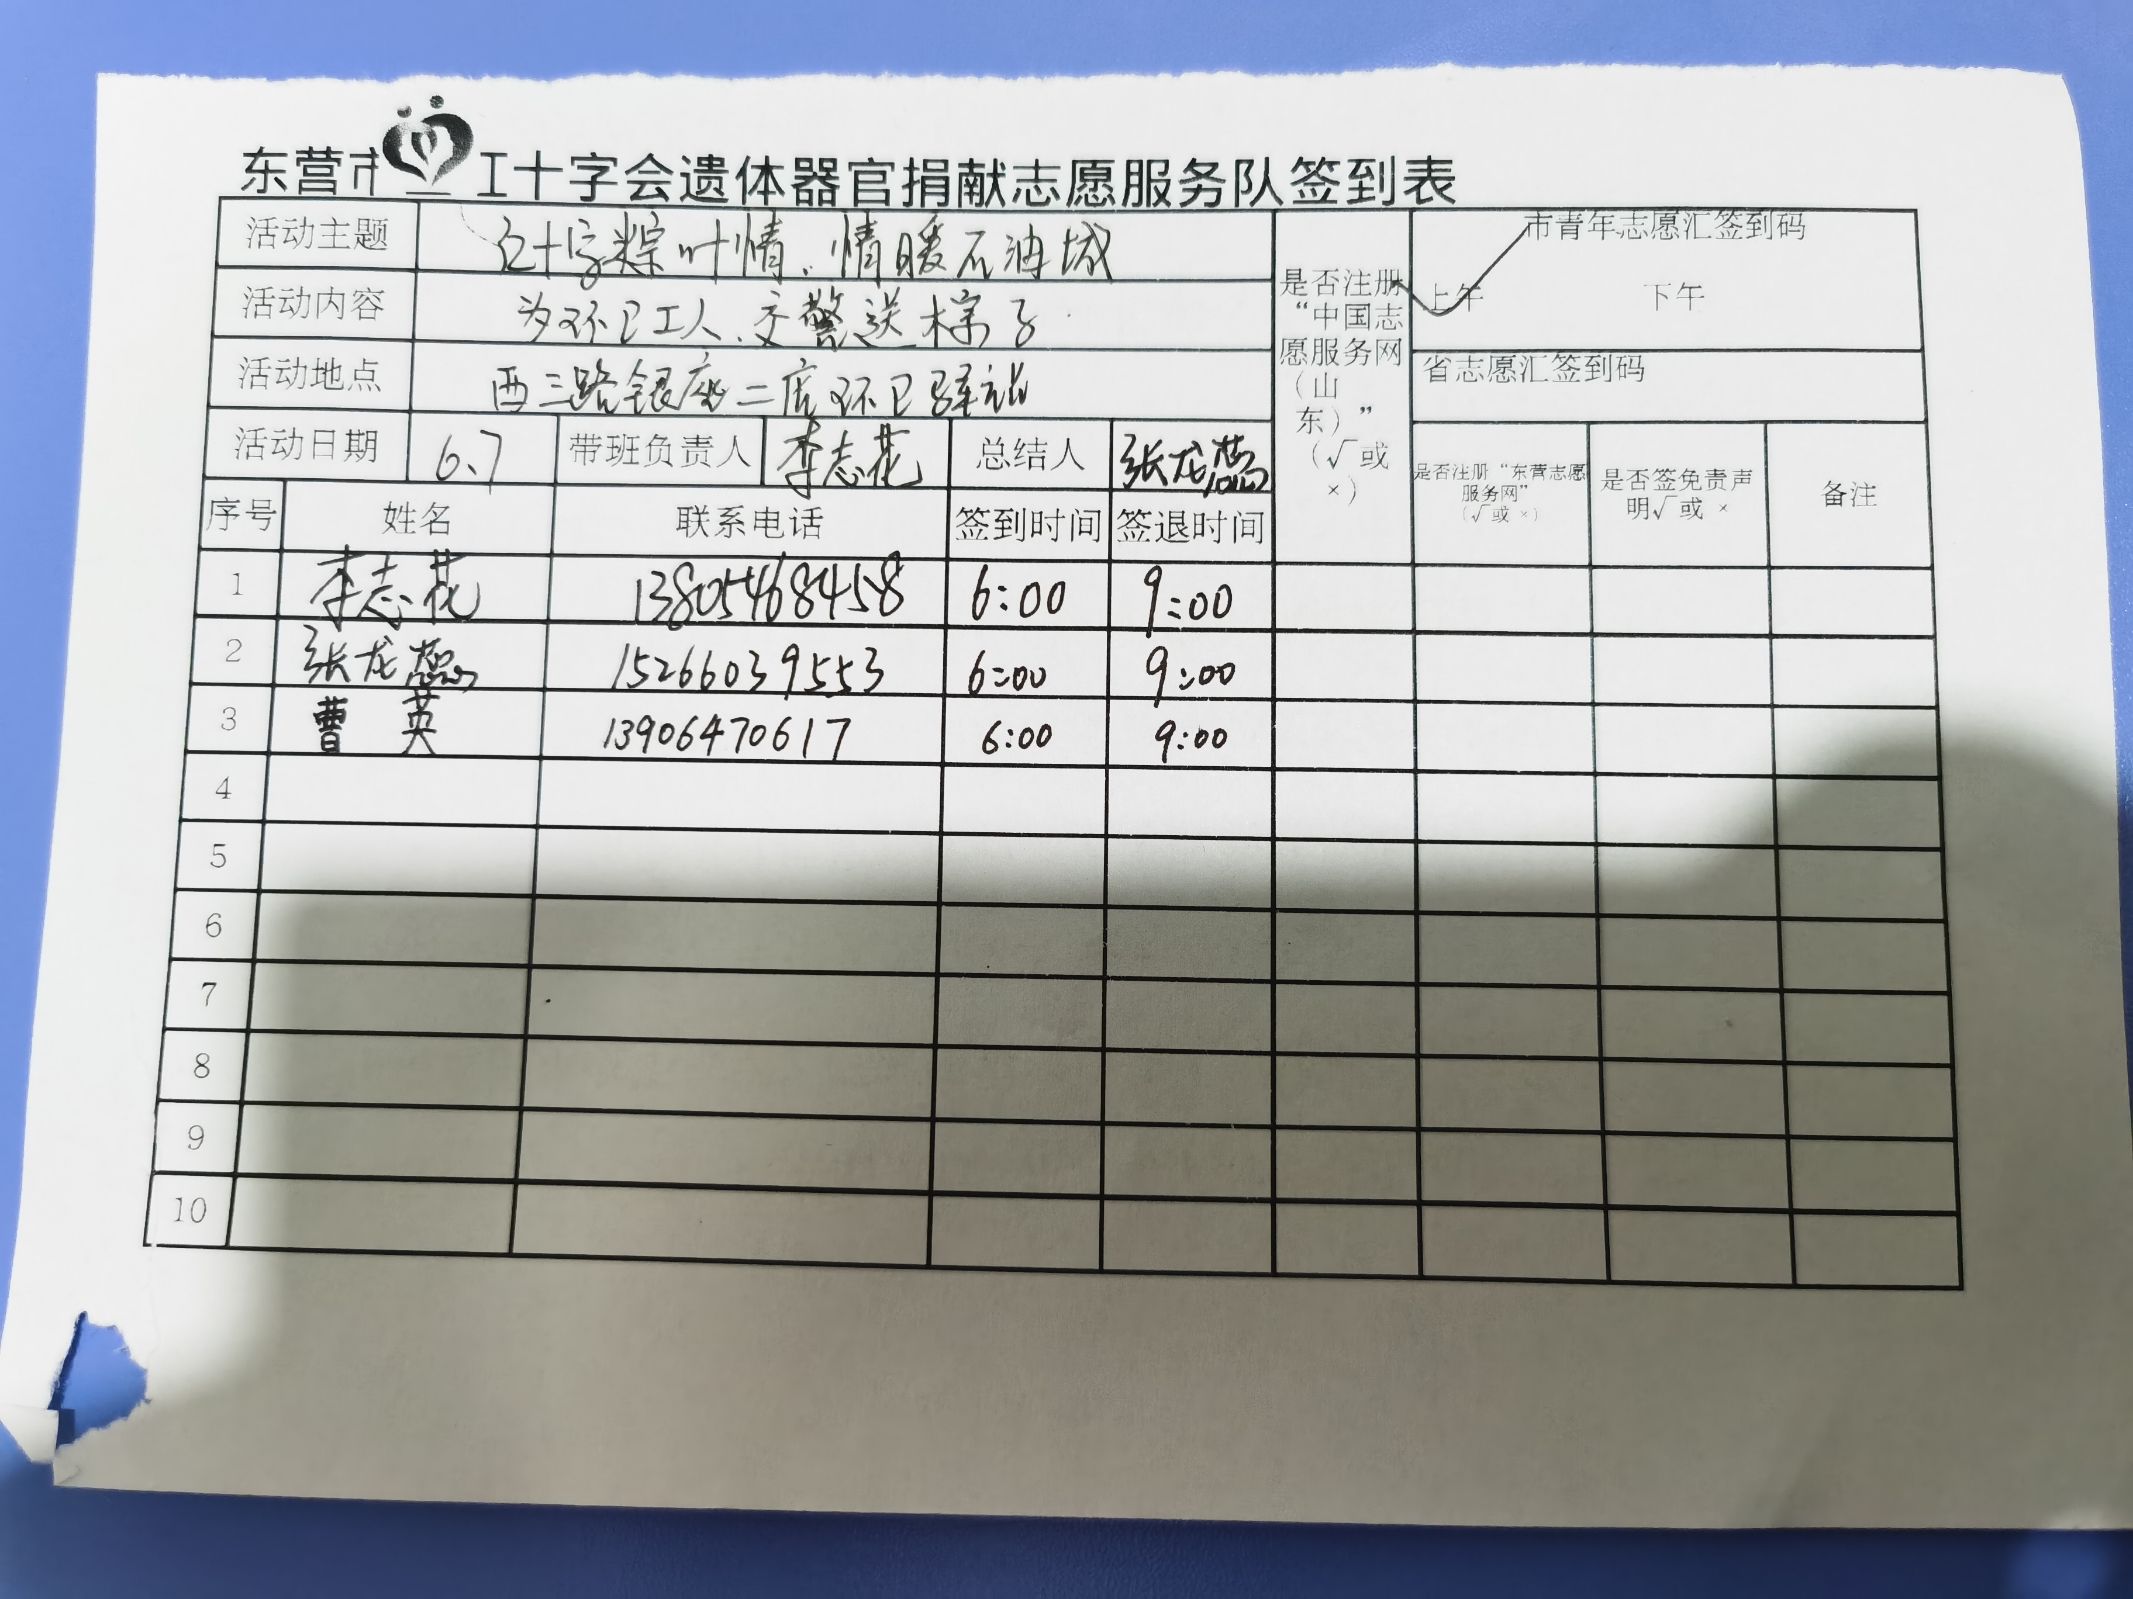 东营市红十字会遗体器官捐献志愿服务队签到表
活动主题 红十字粽叶情、情暖石油城
活动内容 为环卫工人、交警送棕子
活动地点 西三路银座二店环卫驿站
活动日期 6.7 带班负责人 李志花 总结人 张龙蕊
是否注册
“中国志
愿服务网
（山
东）”
（√或
×）
市青年志愿汇签到码
上午 下午
省志愿汇签到码
是否注册“东营志愿
服务网”
（√或 ×）
是否签免责声
明√或 ×
备注
序号 姓名 联系电话 签到时间 签退时间
1 李志花 13805468458 6:00 9:00
2 张龙蕊 15266039553 6:00 9:00
3 曹英 13906470617 6:00 9:00
4
5
6
7
8
9
10